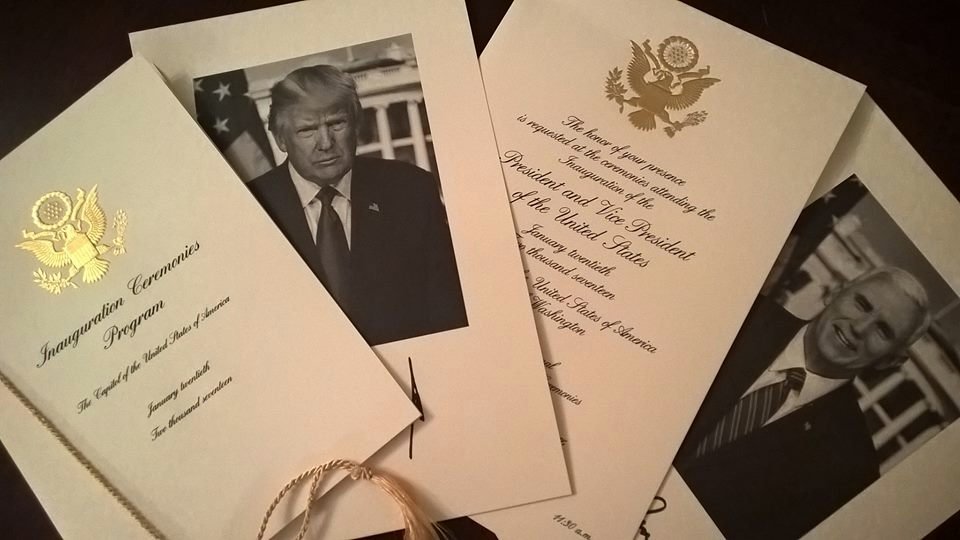 Inauguration Ceremonies
Program
The Capitol of the United States of America
January twentieth
Two thousand seventeen
The honor of your presence
is requested at the ceremonies attending the
Inauguration of the
President and Vice President
of the United States
January twentieth
thousand seventeen
United States of America
Washington
11:30 a.m.